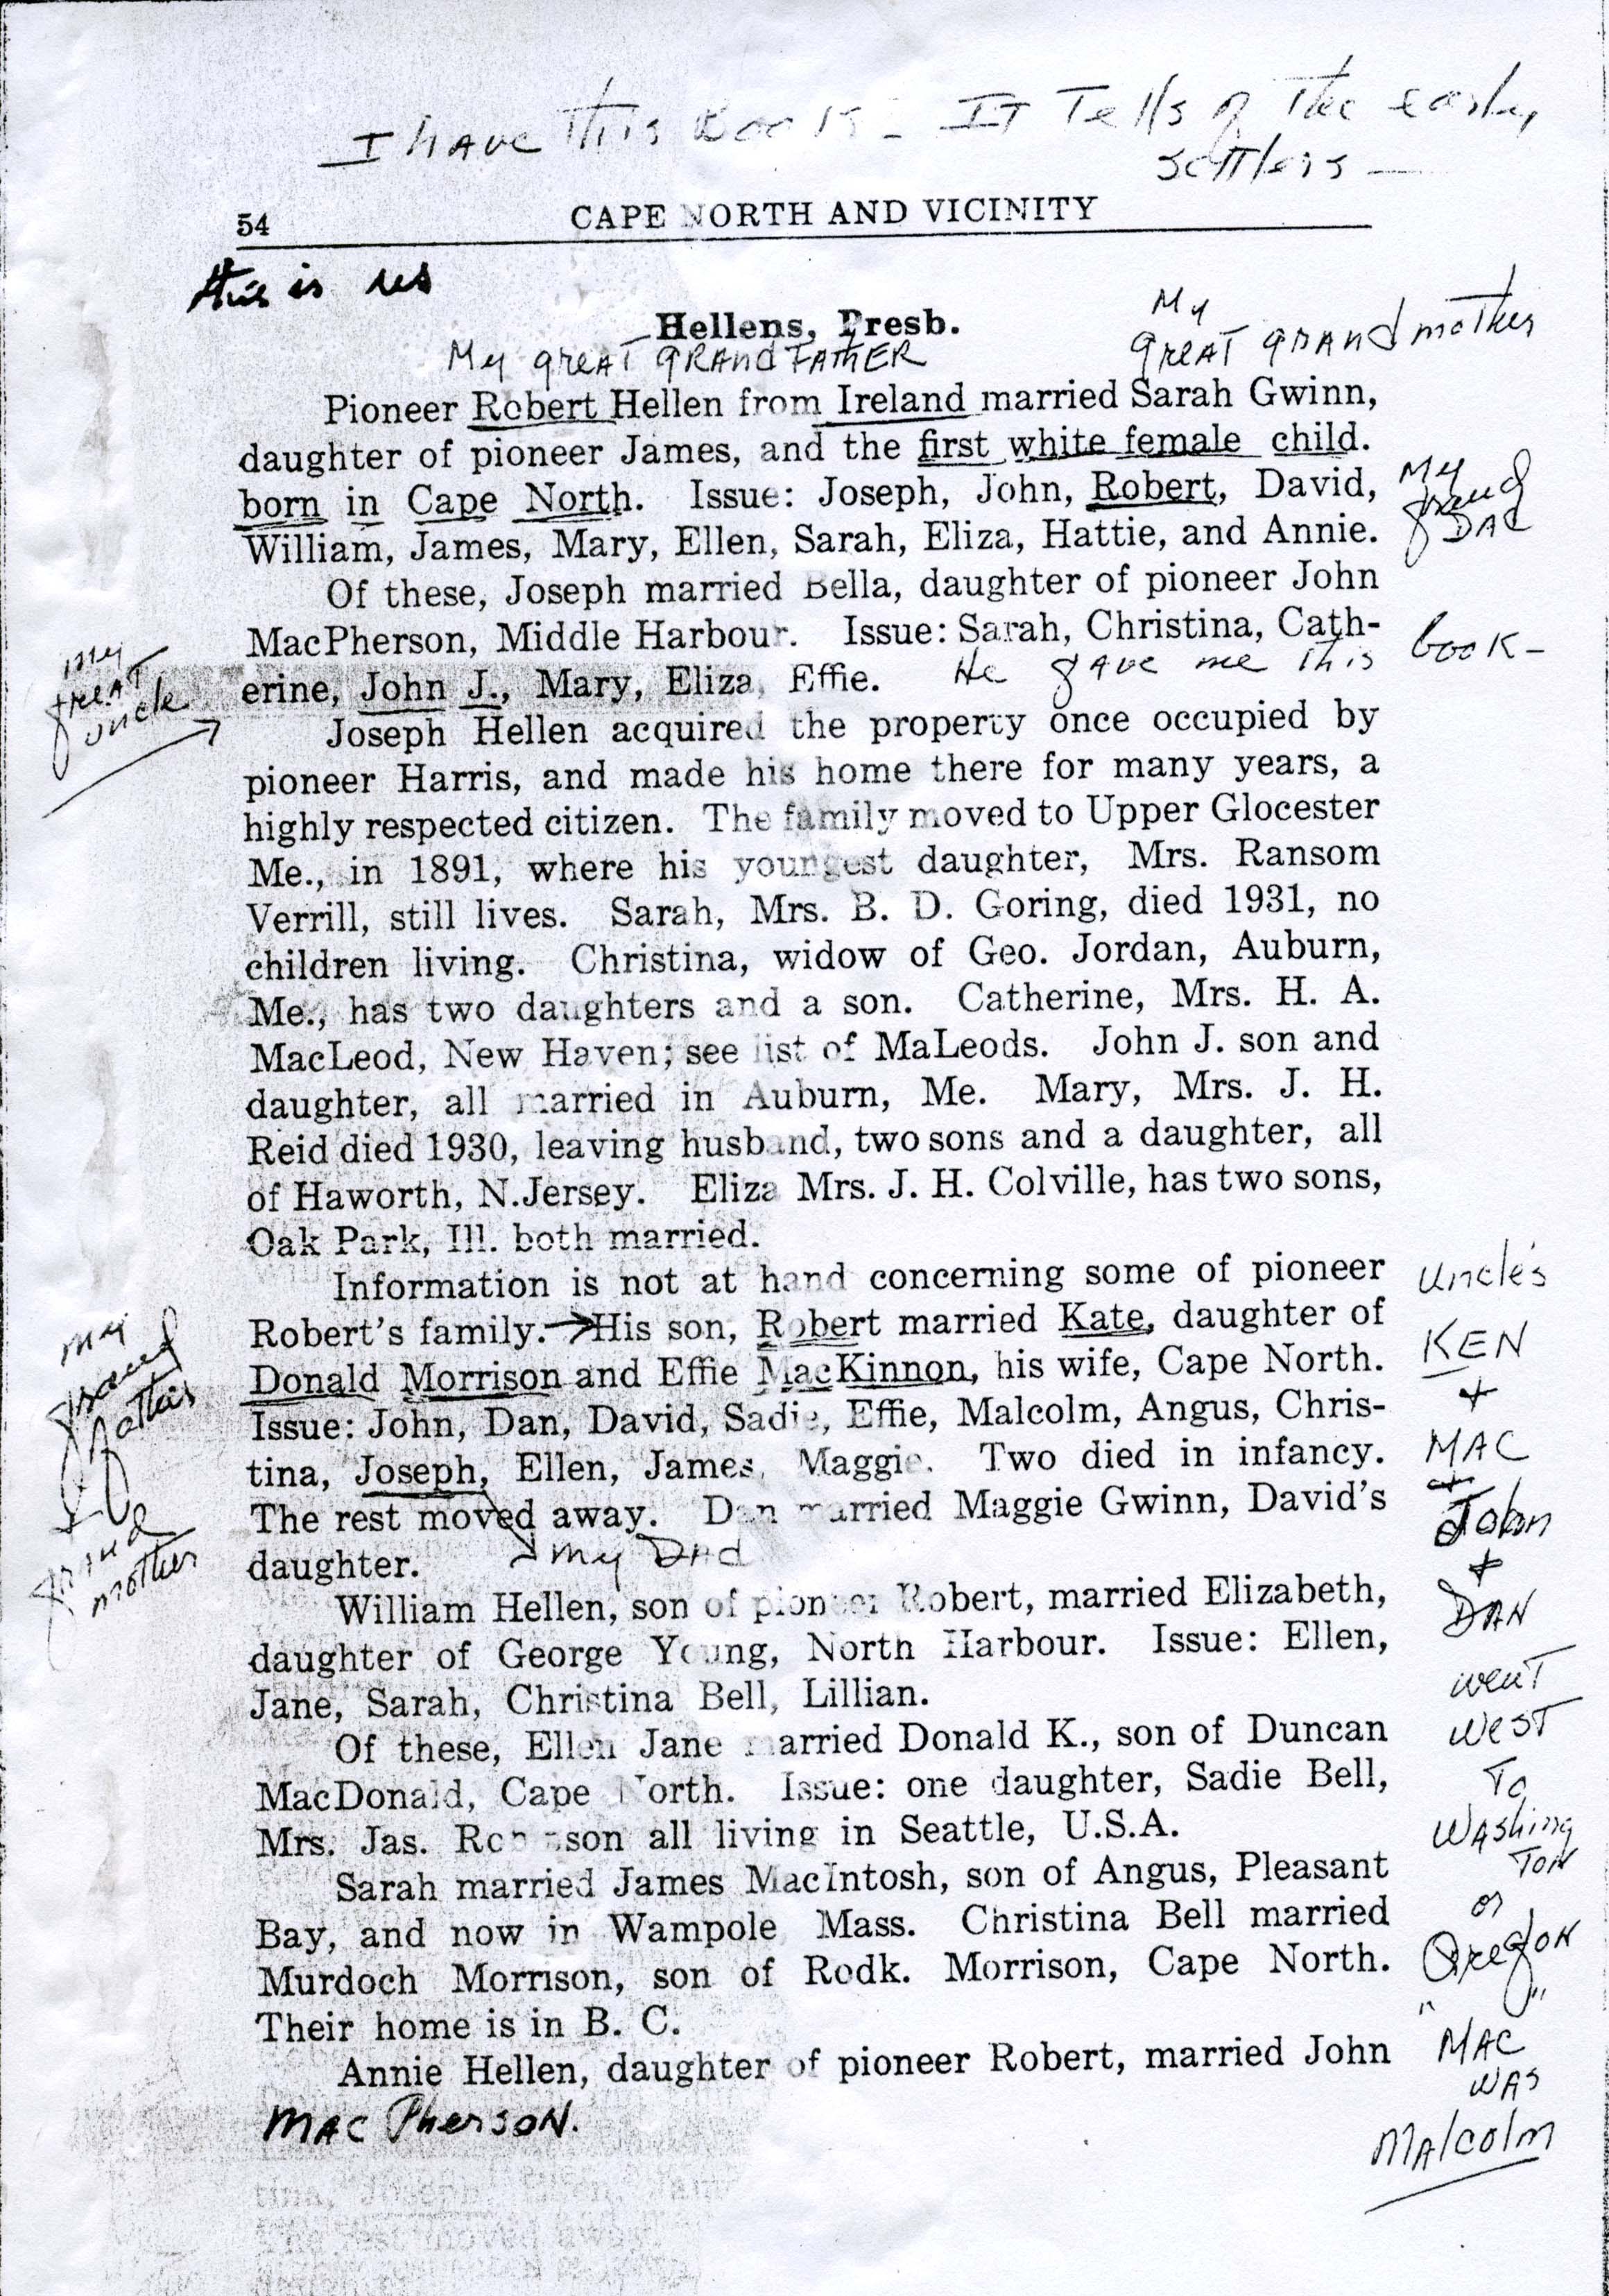 I HAVE THIS BOOK - IT Tells of The early
settlers -
54 CAPE NORTH AND VICINITY
this is us
Hellens, Presb.
My
great grandmother
My great GRANDFATHER
Pioneer Robert Hellen from Ireland married Sarah Gwinn,
daughter of pioneer James, and the first white female child.
born in Cape North. Issue: Joseph, John, Robert, David,
My
grand
DAD
William, James, Mary, Ellen, Sarah, Eliza, Hattie, and Annie.
Of these, Joseph married Bella, daughter of pioneer John
MacPherson, Middle Harbour. Issue: Sarah, Christina, Cath-
erine, John J., Mary, Eliza, Effie. He gave me this book -
my
great
uncle
Joseph Hellen acquired the property once occupied by
pioneer Harris, and made his home there for many years, a
highly respected citizen. The family moved to Upper Glocester
Me., in 1891, where his youngest daughter, Mrs. Ransom
Verrill, still lives. Sarah, Mrs. B. D. Goring, died 1931, no
children living. Christina, widow of Geo. Jordan, Auburn,
Me., has two daughters and a son. Catherine, Mrs. H. A.
MacLeod, New Haven; see list of MaLeods. John J. son and
daughter, all married in Auburn, Me. Mary, Mrs. J. H.
Reid died 1930, leaving husband, two sons and a daughter, all
of Haworth, N.Jersey. Eliza Mrs. J. H. Colville, has two sons,
Oak Park, Ill. both married.
Information is not at hand concerning some of pioneer
Robert's family. →His son, Robert married Kate, daughter of
Donald Morrison and Effie MacKinnon, his wife, Cape North.
Issue: John, Dan, David, Sadie, Effie, Malcolm, Angus, Chris-
tina, Joseph, Ellen, James, Maggie. Two died in infancy.
The rest moved away. Dan married Maggie Gwinn, David's
daughter. my Dad
my
grand
father
&
grand
mother
William Hellen, son of pioneer Robert, married Elizabeth,
daughter of George Young, North Harbour. Issue: Ellen,
Jane, Sarah, Christina Bell, Lillian.
Of these, Ellen Jane married Donald K., son of Duncan
MacDonald, Cape North. Issue: one daughter, Sadie Bell,
Mrs. Jas. all living in Seattle, U.S.A.
Sarah married James MacIntosh, son of Angus, Pleasant
Bay, and now in Wampole Mass. Christina Bell married
Murdoch Morrison, son of Rodk. Morrison, Cape North.
Their home is in B. C.
Annie Hellen, daughter of pioneer Robert, married John
MAC PhersoN.
Uncle's
KEN
+
MAC
+
John
+
DAN
went
west
To
WAshing
TON
or
OregoN
"MAC"
WAS
MAlcolm